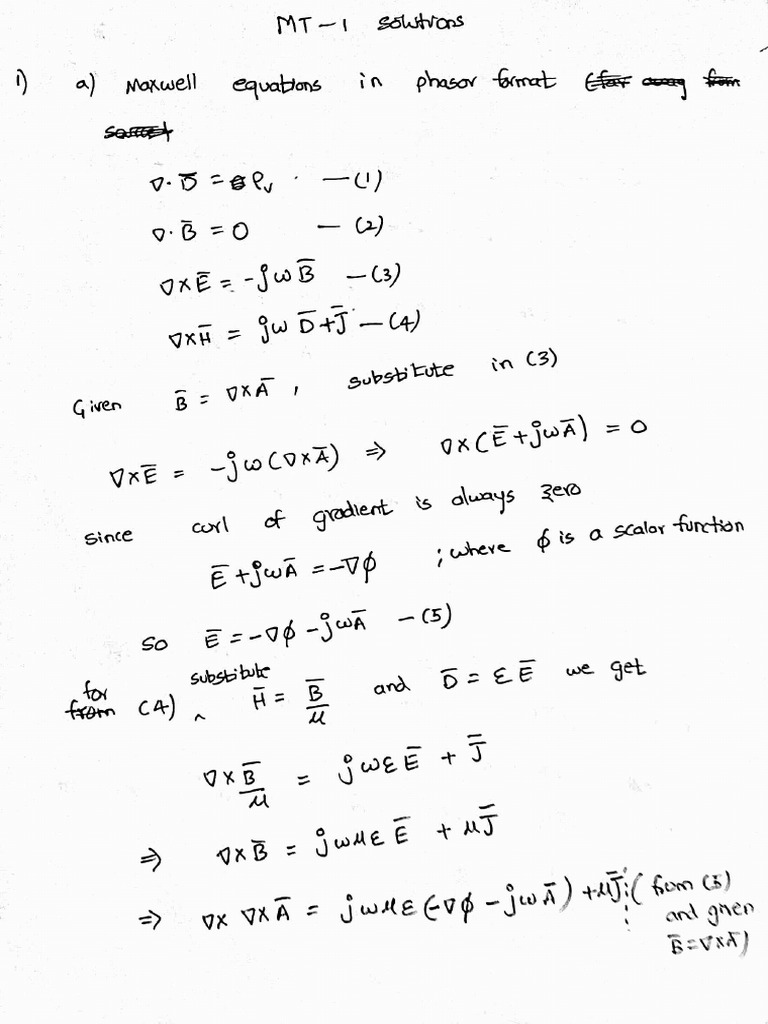 MT-1 solutions
1) a) Maxwell equations in phasor format (far away from
source)
∇·D̄ = ρᵥ —(1)
∇·B̄ = 0 —(2)
∇×Ē = -jωB̄ —(3)
∇×H̄ = jωD̄+J̄ —(4)
Given B̄ = ∇×Ā , substitute in (3)
∇×Ē = -jω(∇×Ā) ⇒ ∇×(Ē+jωĀ) = 0
since curl of gradient is always zero
Ē+jωĀ = -∇ϕ ; where ϕ is a scalar function
so Ē = -∇ϕ -jωĀ —(5)
for from (4) ^ substitute H̄ = B̄/μ and D̄ = εĒ we get
∇×B̄/μ = jωεĒ + J̄
⇒ ∇×B̄ = jωμεĒ + μJ̄
⇒ ∇×∇×Ā = jωμε(-∇ϕ -jωĀ) +μJ̄ ; (from (5)
and given
B̄=∇×Ā)